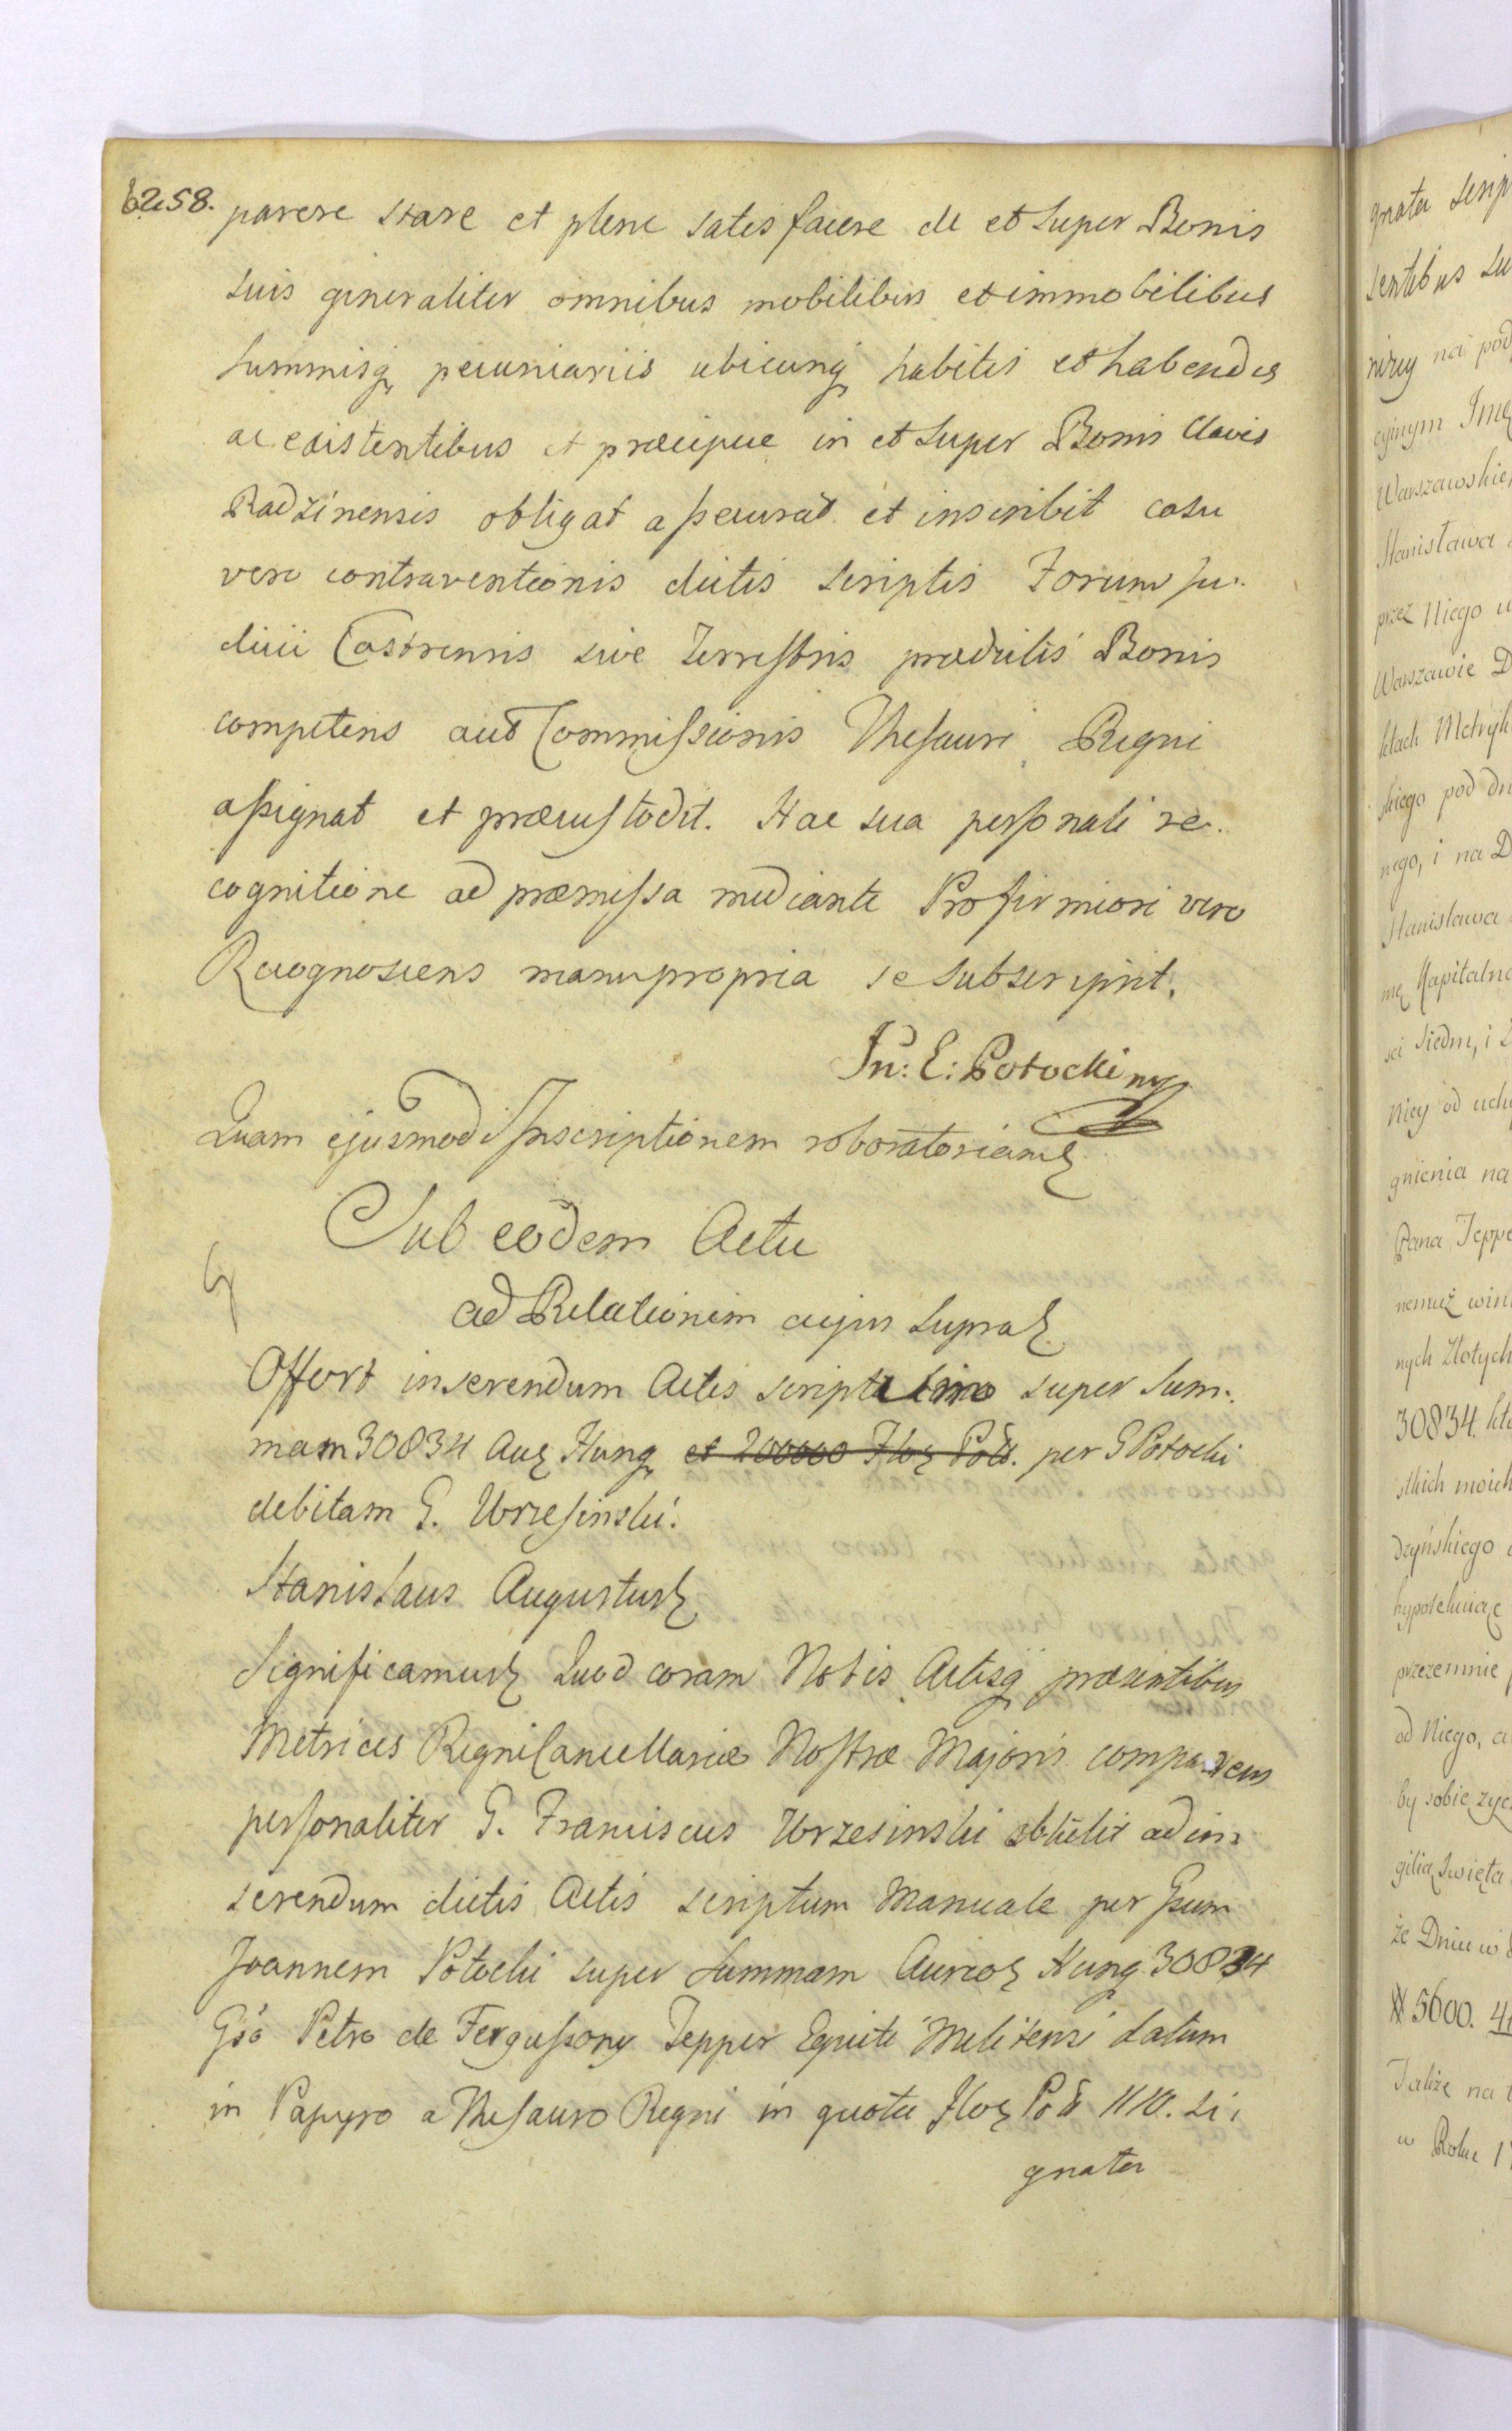 6258.
parere stare et plene satisfacere de et super Bonis
suis generaliter omnibus mobilibus et immobilibus
summisq pecuniariis ubicunq habitis et habendis
ac existentibus et præcipue in et super Bonis Clavis
Radzinensis obligat assecurat et inscribit casu
vero contraventionis dictis scriptis Forum Ju-
dicii Castrensis sive Terrestris prædictis Bonis
competens aut Commissionis Thesauri Regni
assignat et præcustodit. Hac sua personali re-
cognitione ad præmissa mediante Pro firmiori vero
Recognoscens manupropria se subscripsit.
Jn: E: Potocki mp
Quam ejusmodi Inscriptionem roboratoriam
Sub eodem Actu
ad Relationem cujus supra
Offert inserendum Actis scriptum super Sum-
mam 30834 Aur Hung et 200000 Flor Pol. per G Potocki
debitam G. Wrzesinski.
Stanislaus Augustus
Significamus Quod coram Nobis Actisq præsentibus
Metrices Regni Cancellariæ Nostræ Majoris comparens
personaliter G. Franciscus Wrzesinski obtulit ad in-
serendum dictis Actis scriptum Manuale per Gsum
Joannem Potocki super Summam Aureor Hung 30834
Gso Petro de Fergusson Tepper Equiti Melitensi datum
in Papyro a Thesauro Regni in quota Flor Pol si-
gnata
gnata
sentibus
niżey na
cyinym
Stanisława
przez Niego
Warszawie
ktach
skiego pod
nego, i na
Stanisława
mę Kapitalną
sci siedm, i
Niey od
gnienia na
Pana
nych Złotych
30834
stkich moich
dzyńskiego
przezemnie
od Niego,
by sobie
gilią Święta
że Dniu w
5600.
Także na
w Roku